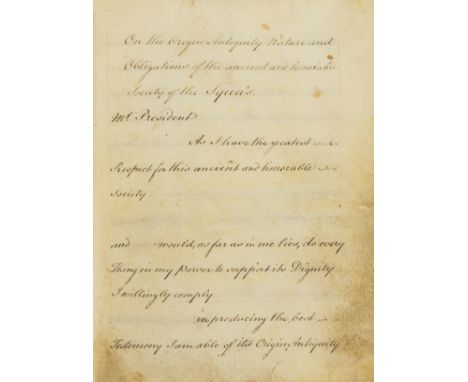 On the Origin Antiquity Nature and
Obligations of the ancient and honorable
Society of the
Mr. President
As I have the greatest
Respect for this ancient and honorable
Society
and would, as far as in me lies, do every
Thing in my Power to support its Dignity
I willingly comply
in producing the best
Testimony I am able of its Origin, Antiquity